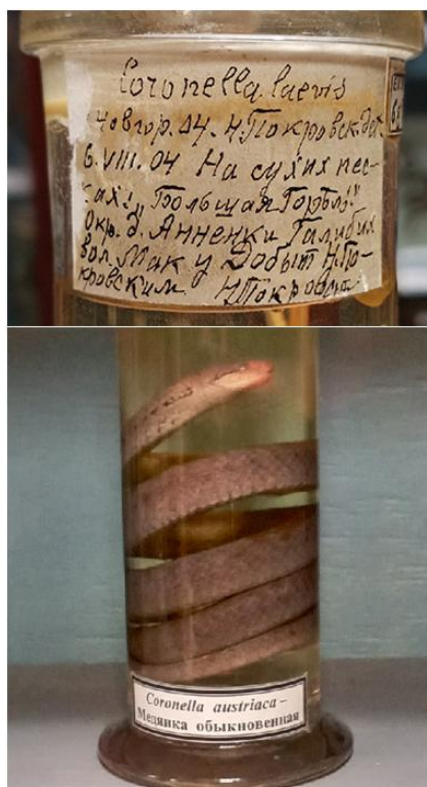 Coronella laevis
Новгор. 04. Н. Покровск. det.
6. VIII. 04 На сухих пес-
ках! „Большая Горбл"
окр. д. Анненки Галибих
вол. Мак. у Добыт Н. По-
кровским Н. Покровск
Coronella austriaca –
Медянка обыкновенная